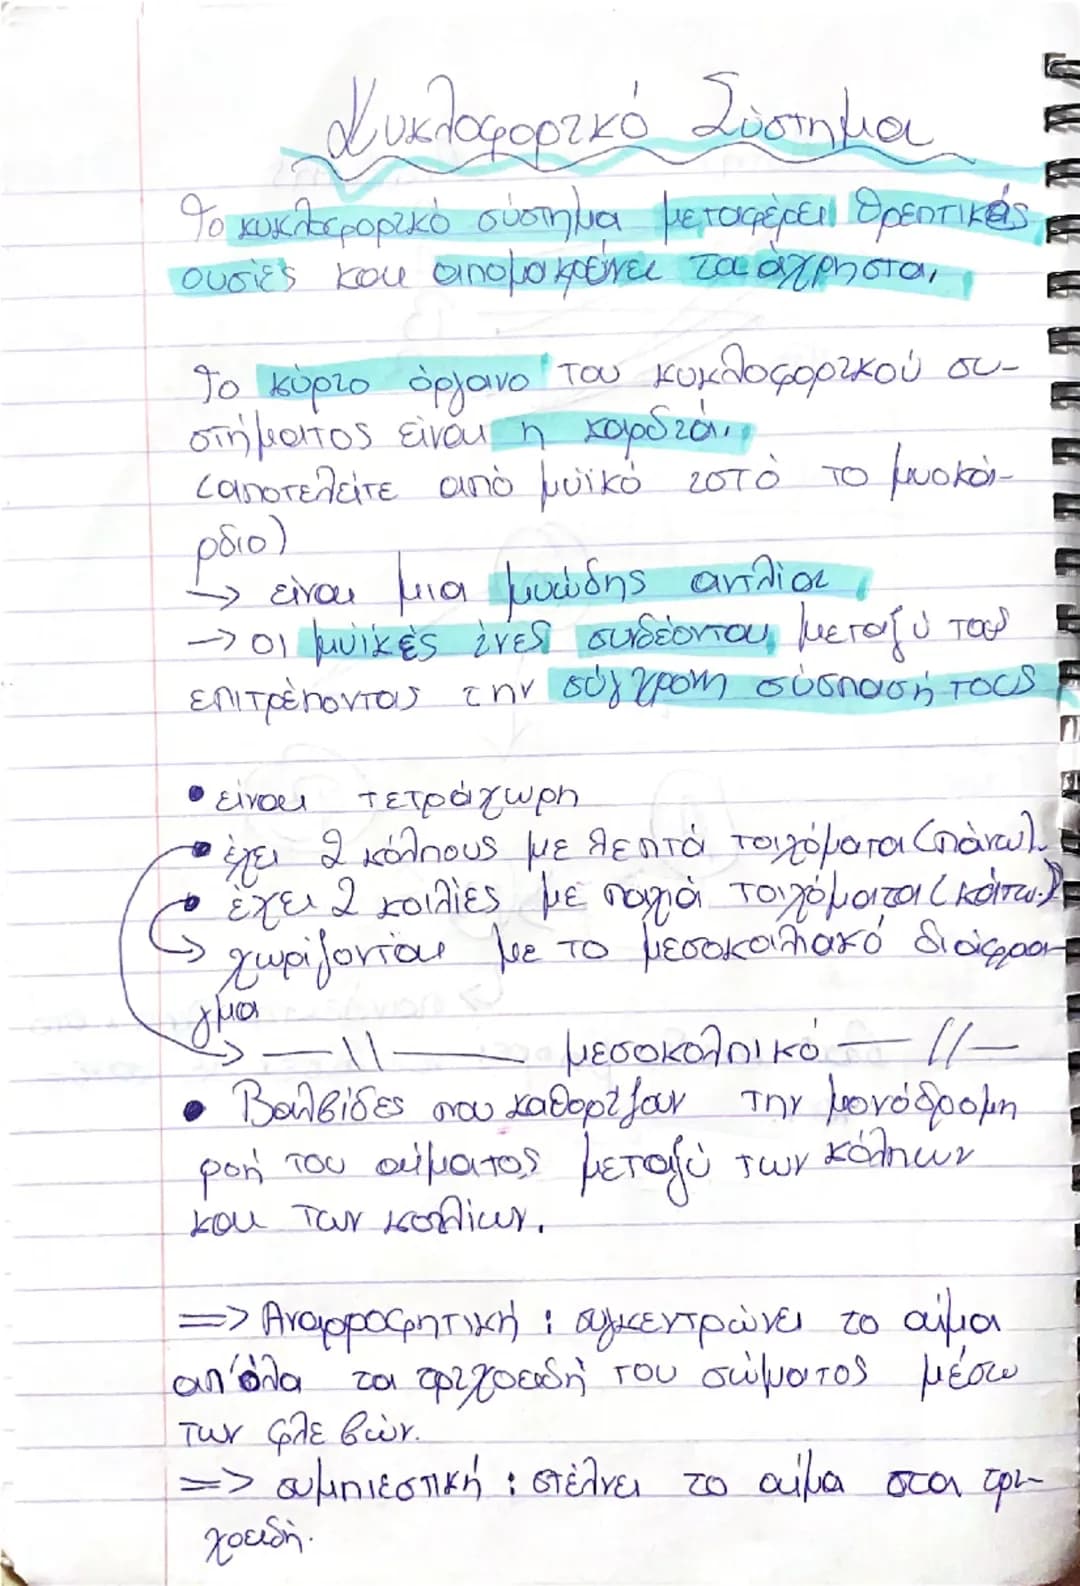 Κυκλοφορικό Σύστημα
Το κυκλοφορικό σύστημα μεταφέρει θρεπτικές
ουσίες και απομακρένει τα άχρηστα,
Το κύριο όργανο του κυκλοφορικού συ-
στήματος είναι η καρδιά.
(αποτελείτε από μυϊκό ιστό το μυοκά-
ρδιο)
→ είναι μια μυώδης αντλία
→ οι μυϊκές ίνες συνδέονται μεταξύ τους
επιτρέποντας την σύγχρονη σύσπασή τους
• είναι τετράχωρη
• έχει 2 κόλπους με λεπτά τοιχόματα (πάνω)
• έχει 2 κοιλίες με παχιά τοιχόματα (κάτω)
↳ χωρίζονται με το μεσοκοιλιακό διάφρα-
γμα
→ —\\— μεσοκολπικό —//—
• Βαλβίδες που καθορίζουν την μονόδρομη
ροή του αίματος μεταξύ των κόλπων
και των κοιλιών.
=> Αναρροφητική : συγκεντρώνει το αίμα
απ'όλα τα τριχοειδή του σώματος μέσω
των φλεβών.
=> συμπιεστική : στέλνει το αίμα στα τρι-
χοειδή.